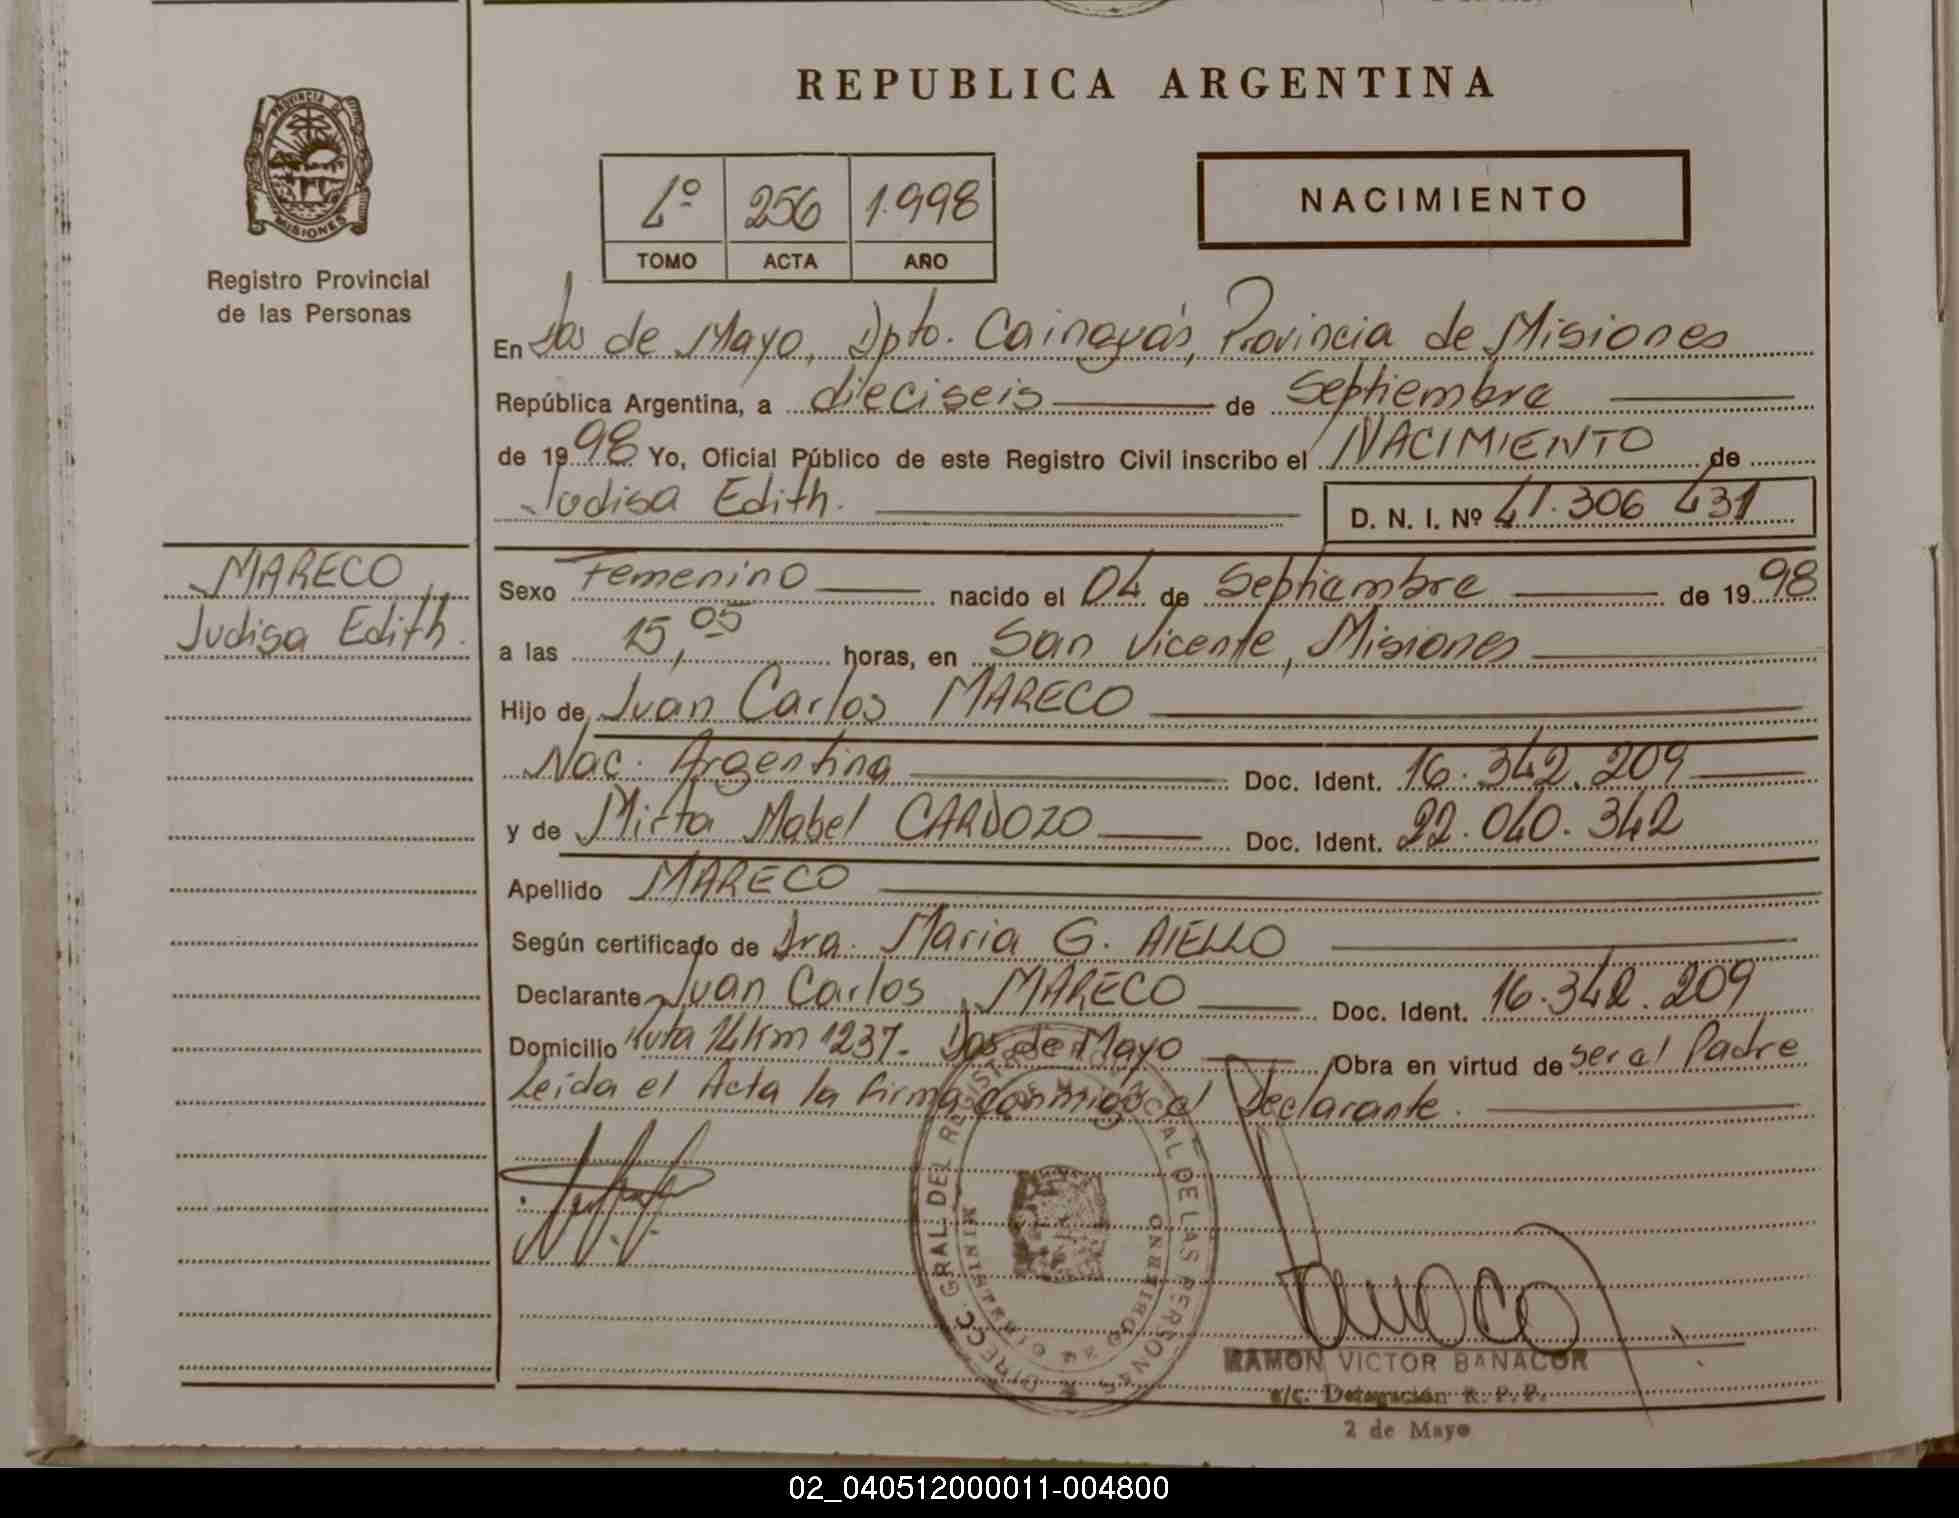 REPUBLICA ARGENTINA
PROVINCIA DE
MISIONES
Registro Provincial
de las Personas
1º 256 1.998
TOMO ACTA AÑO
NACIMIENTO
En Dos de Mayo, Dpto. Cainguás, Provincia de Misiones
República Argentina, a dieciseis de Septiembre
de 1998 Yo, Oficial Público de este Registro Civil inscribo el NACIMIENTO de
Judisa Edith.
D. N. I. Nº 41.306 431
MARECO
Judisa Edith.
Sexo Femenino nacido el 04 de Septiembre de 1998
a las 15,05 horas, en San Vicente, Misiones
Hijo de Juan Carlos MARECO
Nac. Argentina Doc. Ident. 16.342.209
y de Mirta Mabel CARDOZO Doc. Ident. 22.040.342
Apellido MARECO
Según certificado de Dra. Maria G. AIELLO
Declarante Juan Carlos MARECO Doc. Ident. 16.342.209
Domicilio Ruta 14 Km 1237- Dos de Mayo Obra en virtud de ser el Padre
Leida el Acta la firma conmigo el Declarante.
DIRECC. GRAL. DEL REGISTRO PROVINCIAL DE LAS PERSONAS
MINISTERIO DE GOBIERNO
RAMON VICTOR BANACOR
a/c. Delegación R.P.P.
2 de Mayo
02_040512000011-004800